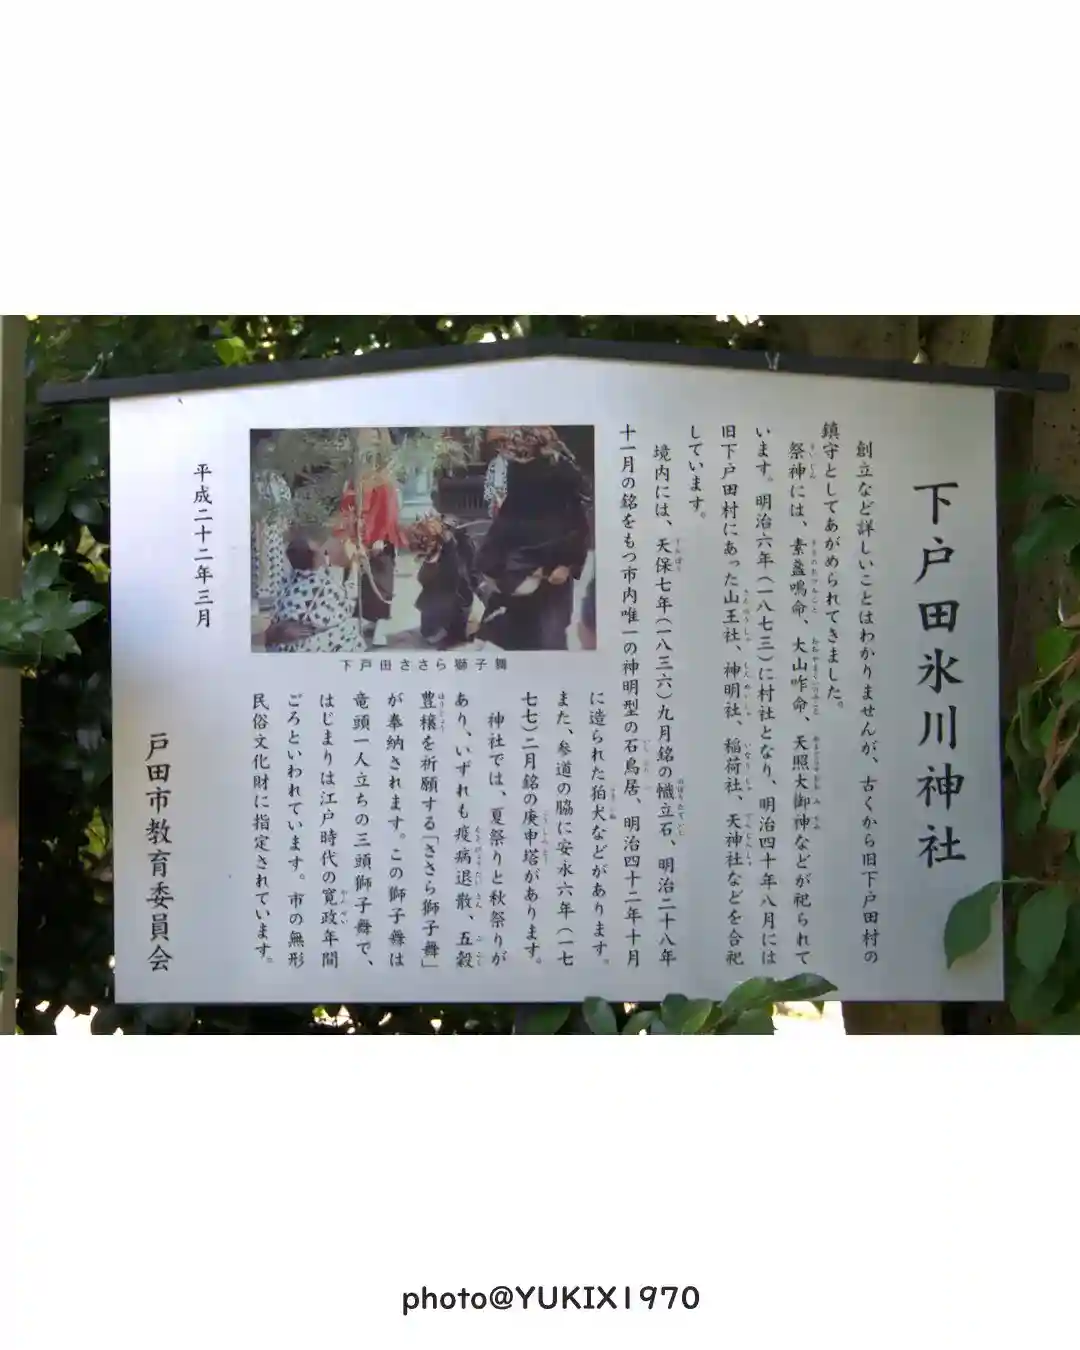 下戸田氷川神社
創立など詳しいことはわかりませんが、古くから旧下戸田村の
鎮守としてあがめられてきました。
祭神には、素盞鳴命、大山咋命、天照大御神などが祀られて
います。明治六年(一八七三)に村社となり、明治四十年八月には
旧下戸田村にあった山王社、神明社、稲荷社、天神社などを合祀
しています。
境内には、天保七年(一八三六)九月銘の幟立石、明治二十八年
十一月の銘をもつ市内唯一の神明型の石鳥居、明治四十二年十月
に造られた狛犬などがあります。
また、参道の脇に安永六年(一七
七七)二月銘の庚申塔があります。
神社では、夏祭りと秋祭りが
あり、いずれも疫病退散、五穀
豊穣を祈願する「ささら獅子舞」
が奉納されます。この獅子舞は
竜頭一人立ちの三頭獅子舞で、
はじまりは江戸時代の寛政年間
ごろといわれています。市の無形
民俗文化財に指定されています。
下戸田ささら獅子舞
平成二十二年三月
戸田市教育委員会
photo@YUKIX1970